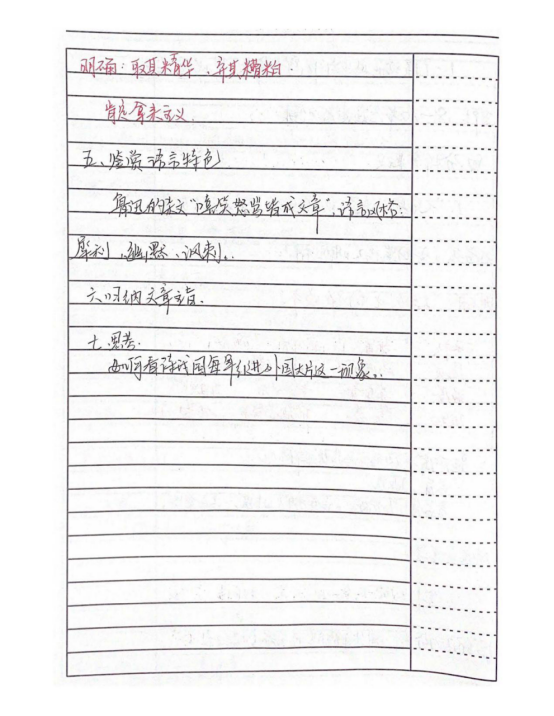 明确：取其精华、弃其糟粕.
肯定拿来主义.
五、鉴赏语言特色
鲁迅的杂文“嘻笑怒骂皆成文章”,语言风格:
犀利、幽默、讽刺.
六.归纳文章主旨.
七.思考.
如何看待我国每年引进外国大片这一现象.